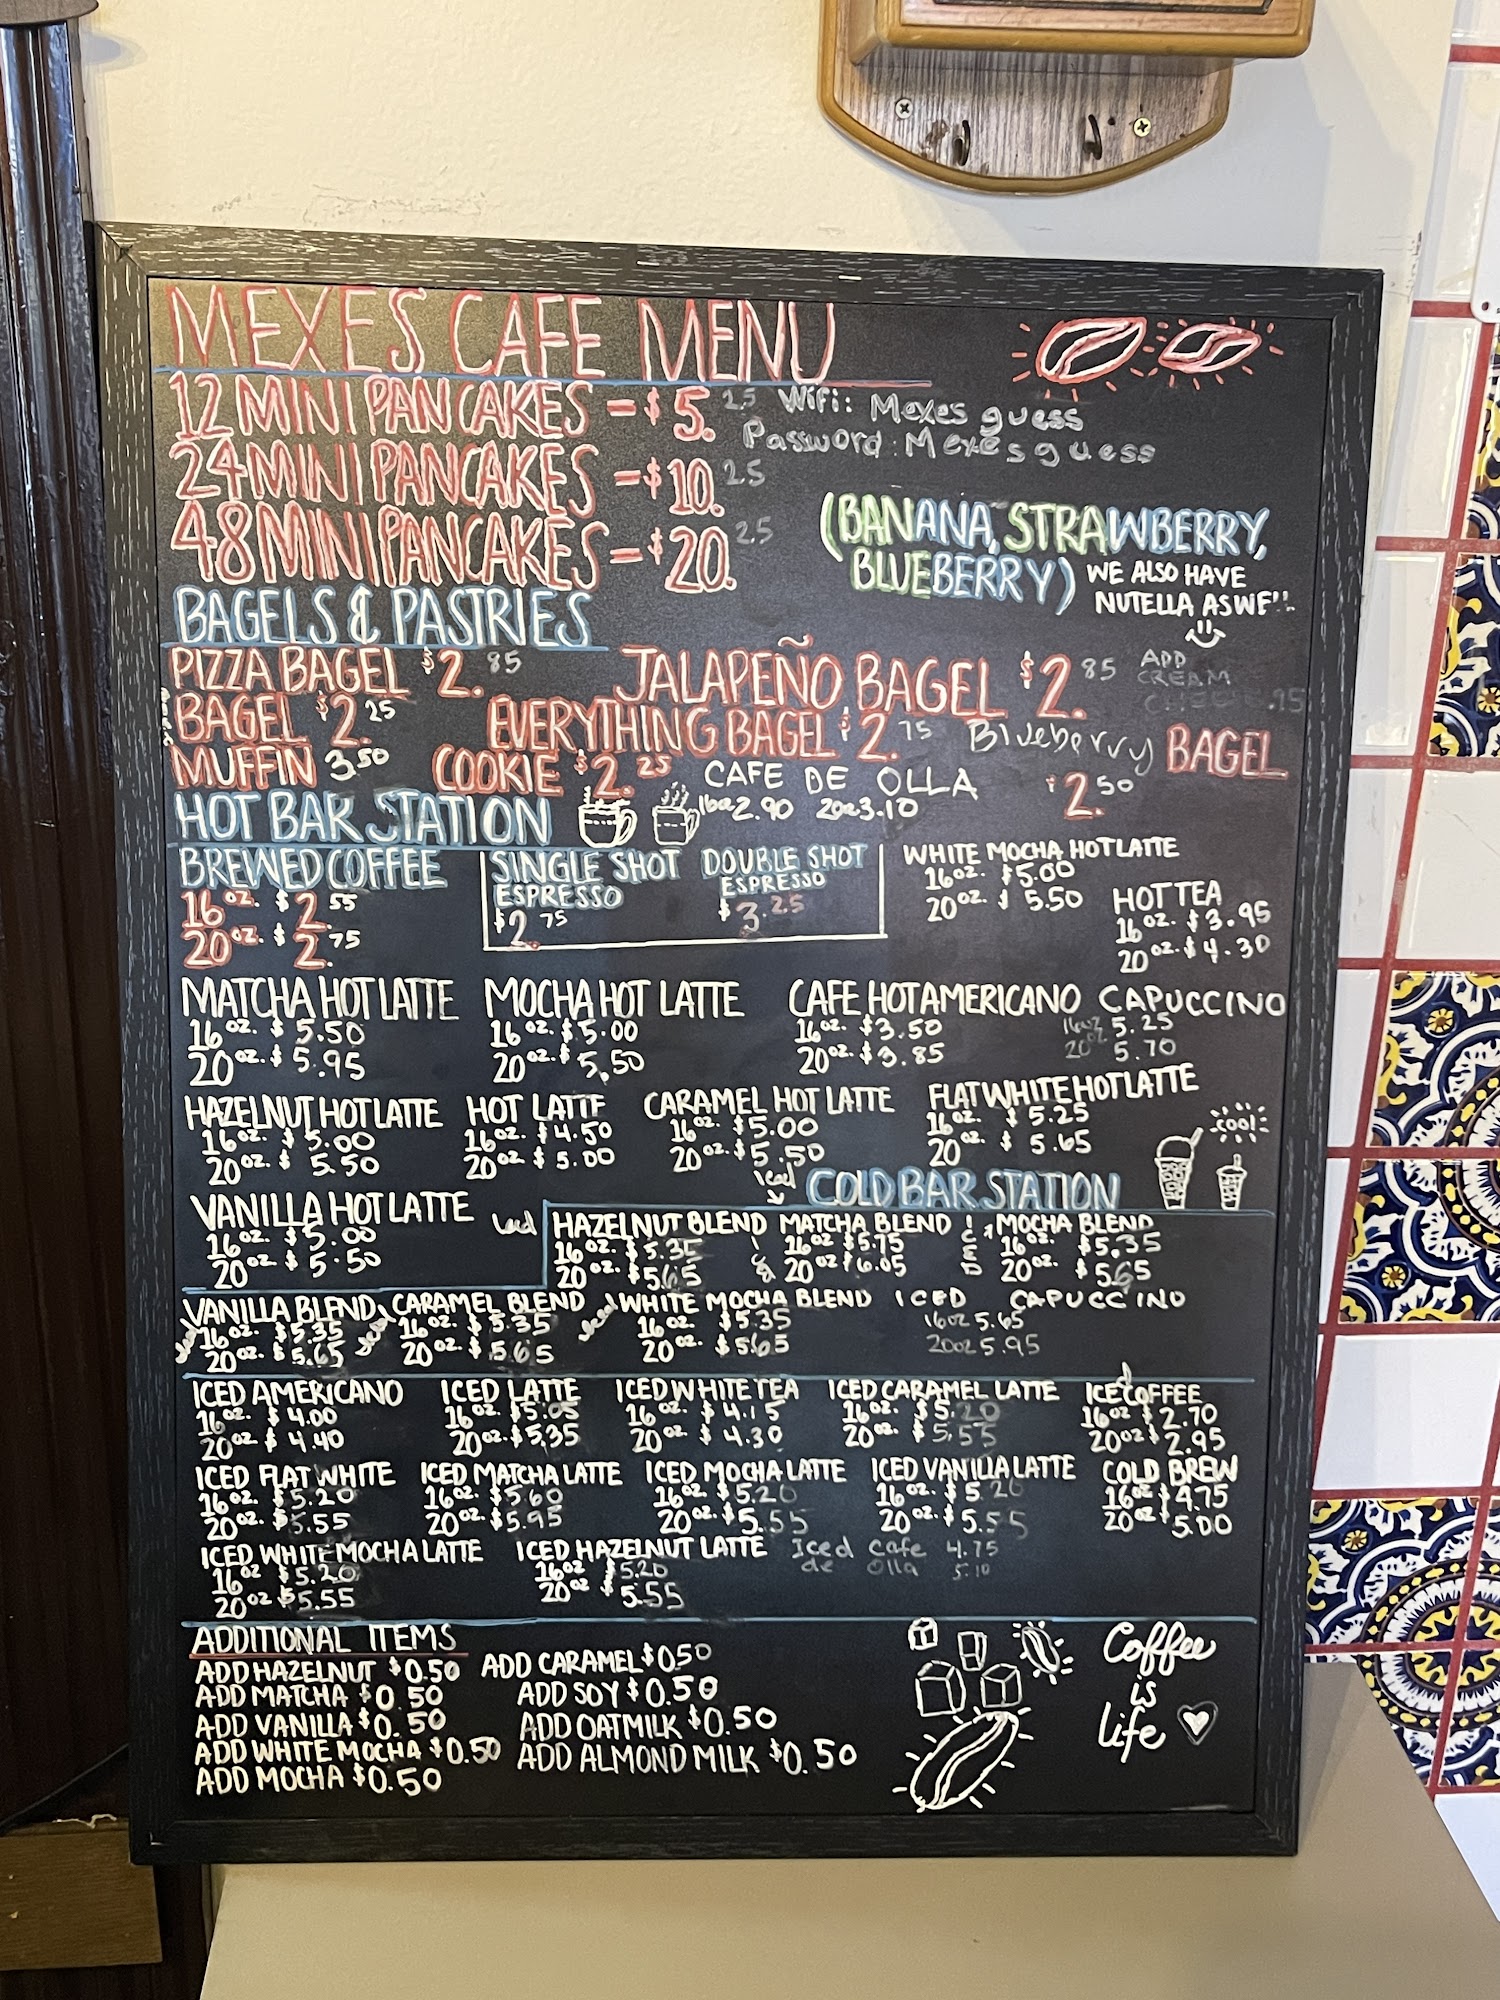 MEXES CAFE MENU
12 MINI PANCAKES - $5.25
Wifi: Mexes guess
Password: Mexes guess
24 MINI PANCAKES - $10.25
48 MINI PANCAKES - $20.25
(BANANA, STRAWBERRY,
BLUEBERRY) WE ALSO HAVE
NUTELLA AS
BAGELS & PASTRIES
PIZZA BAGEL $2.85
JALAPEÑO BAGEL $2.85
ADD
CREAM
BAGEL $2.25
EVERYTHING BAGEL $2.75
Blueberry BAGEL
$2.50
MUFFIN 3.50
COOKIE $2.25
CAFE DE OLLA
16oz 2.90 20oz 3.10
HOT BAR STATION
BREWED COFFEE
16oz. $2.55
20oz. $2.75
SINGLE SHOT
ESPRESSO
$2.75
DOUBLE SHOT
ESPRESSO
$3.25
WHITE MOCHA HOT LATTE
16oz. $5.00
20oz. $5.50
HOT TEA
16oz. $3.95
20oz. $4.30
MATCHA HOT LATTE
16oz. $5.50
20oz. $5.95
MOCHA HOT LATTE
16oz. $5.00
20oz. $5.50
CAFE HOT AMERICANO
16oz. $3.50
20oz. $3.85
CAPUCCINO
16oz 5.25
20oz 5.70
HAZELNUT HOT LATTE
16oz. $5.00
20oz. $5.50
HOT LATTE
16oz. $4.50
20oz $5.00
CARAMEL HOT LATTE
16oz. $5.00
20oz. $5.50
FLAT WHITE HOT LATTE
16oz. $5.25
20oz. $5.65
cool!
VANILLA HOT LATTE
16oz. $5.00
20oz. $5.50
Iced
COLD BAR STATION
Iced
HAZELNUT BLEND
16oz. $5.35
20oz. $5.65
MATCHA BLEND
16oz. $5.75
20oz $6.05
ICED
MOCHA BLEND
16oz. $5.35
20oz. $5.65
Iced
VANILLA BLEND
16oz. $5.35
20oz. $5.65
Iced
CARAMEL BLEND
16oz. $5.35
20oz. $5.65
Iced
WHITE MOCHA BLEND
16oz. $5.35
20oz. $5.65
ICED CAPUCCINO
16oz 5.65
20oz 5.95
ICED AMERICANO
16oz. $4.00
20oz $4.40
ICED LATTE
16oz. $5.05
20oz. $5.35
ICED WHITE TEA
16oz. $4.15
20oz. $4.30
ICED CARAMEL LATTE
16oz. $5.20
20oz. $5.55
ICEd COFFEE
16oz $2.70
20oz $2.95
ICED FLAT WHITE
16oz. $5.20
20oz. $5.55
ICED MATCHA LATTE
16oz. $5.60
20oz. $5.95
ICED MOCHA LATTE
16oz. $5.20
20oz. $5.55
ICED VANILLA LATTE
16oz. $5.20
20oz. $5.55
COLD BREW
16oz $4.75
20oz $5.00
ICED WHITE MOCHA LATTE
16oz $5.20
20oz $5.55
ICED HAZELNUT LATTE
16oz $5.20
20oz $5.55
Iced cafe 4.75
de olla 5.10
ADDITIONAL ITEMS
ADD HAZELNUT $0.50
ADD MATCHA $0.50
ADD VANILLA $0.50
ADD WHITE MOCHA $0.50
ADD MOCHA $0.50
ADD CARAMEL $0.50
ADD SOY $0.50
ADD OATMILK $0.50
ADD ALMOND MILK $0.50
Coffee
is
life